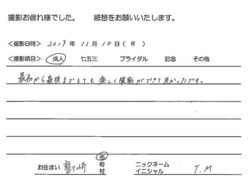 撮影お疲れ様でした。 感想をお願いいたします。
<撮影日時> 2019年 11月 10日(日)
<撮影項目> 成人 七五三 ブライダル 記念 その他
最初から最後までとても楽しく撮影ができて良かったです。
お住まい 市 町 村 ニックネーム イニシャル T.M